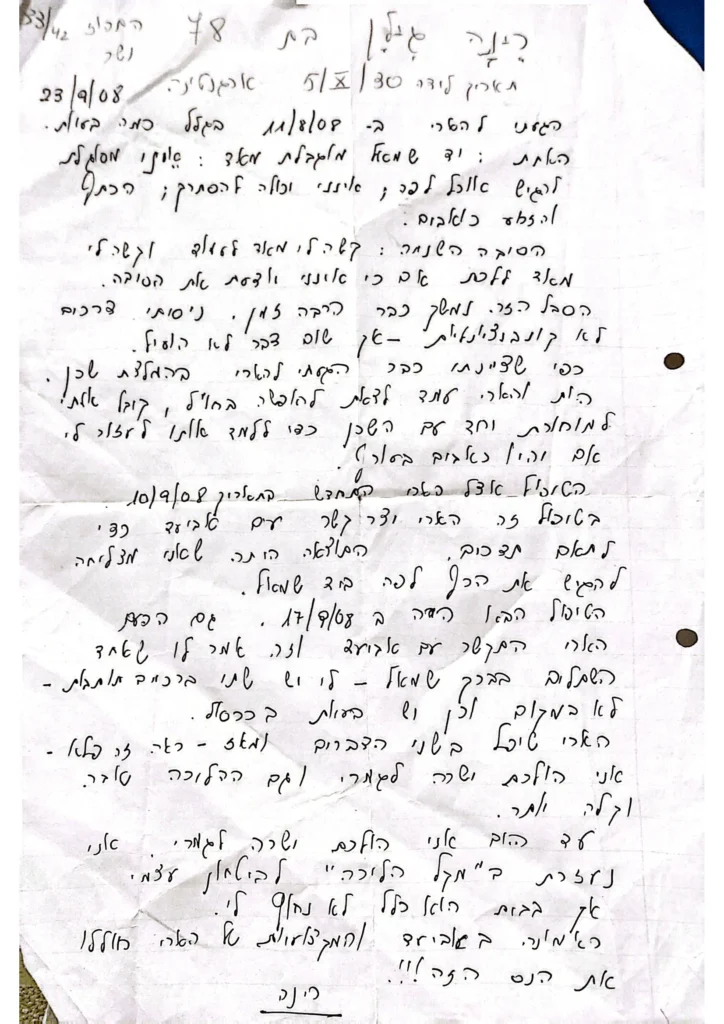 רינה גילן בת 78 החרוז 33/42
ושר
תאריך לידה 5/X/30 ארגנטינה 23/9/08
הגעתי להארי ב- 11/8/08 בגלל כמה בעיות.
האחת: יד שמאל מוגבלת מאד: אינני מסוגלת
להגיש אוכל לפה; אינני יכולה להסתרק; הכתף
והזרוע כואבים.
הסיבה השניה: קשה לי מאד לעמוד וקשה לי
מאד ללכת אם כי אינני יודעת את הסיבה.
הסבל הזה נמשך כבר הרבה זמן. ניסיתי דרכים
לא קונבנציונליות - אך שום דבר לא הועיל.
כפי שציינתי כבר הגעתי להארי בהמלצת שכן.
היות והארי עמד לצאת לחופשה בחו"ל, קיבל אותי
למוחרת יחד עם השכן כדי ללמד אותו לעזור לי
אם יהיו כאבים בעורף.
הטיפול אצל הארי התחדש בתאריך 10/9/08.
בטיפול זה הארי יצר קשר עם אביעד כדי
לתאם תדרים. התוצאה היתה שאני מצליחה
להגיש את הכף לפה ביד שמאל.
הטיפול הבא היה ב 17/9/08. גם הפעם
הארי התקשר עם אביעד וזה אמר לו שאחד
השתלים בברך שמאל - לי יש שתי ברכיים תותבות -
לא במקום וכן יש בעיות בכרסול.
הארי טיפל בשני הדברים ומאז - ראה זה פלא -
אני הולכת ישרה לגמרי וגם ההליכה טובה
וקלה יותר.
עד היום אני הולכת ישרה לגמרי. אני
נעזרת ב"מקל הליכה" לביטחון עצמי
אך בבית הוא כלל לא נחוץ לי.
האמונה באביעד והמקצועיות של הארי חוללו
את הנס הזה!!!
רינה